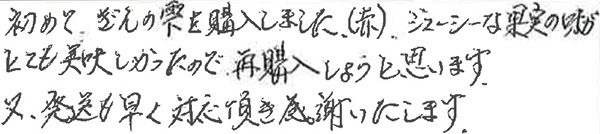 初めて、ぶんの雫を購入しました。(赤)、ジューシーな果実の味が
とても美味しかったので、再購入しようと思います。
又、発送も早く対応頂き感謝いたします。